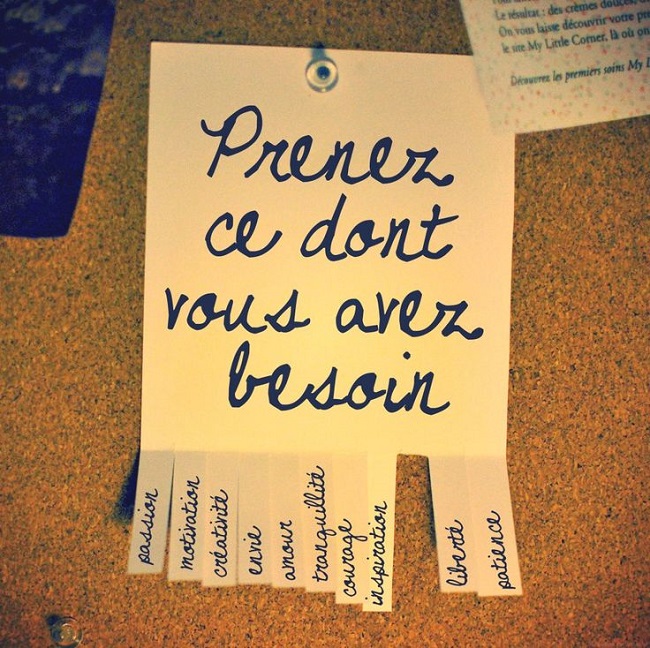 Prenez
ce dont
vous avez
besoin
passion
motivation
créativité
envie
amour
tranquillité
courage
inspiration
liberté
patience
Le résultat : des crèmes douces,
On vous laisse découvrir votre
le site My Little Corner, là où on
Découvrez les premiers soins My